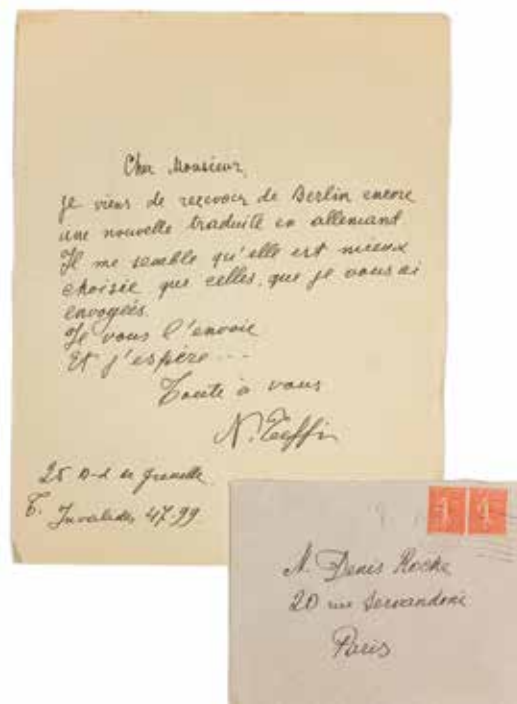 Cher Monsieur,
je viens de recevoir de Berlin encore
une nouvelle traduite en allemand.
Il me semble qu'elle est mieux
choisie que celles, que je vous ai
envoyées.
Je vous l'envoie
Et j'espère...
Toute à vous
N. Teffi
25 B-d de Grenelle
T. Invalides 47-99
M. Denis Roche
20 rue Servandoni
Paris